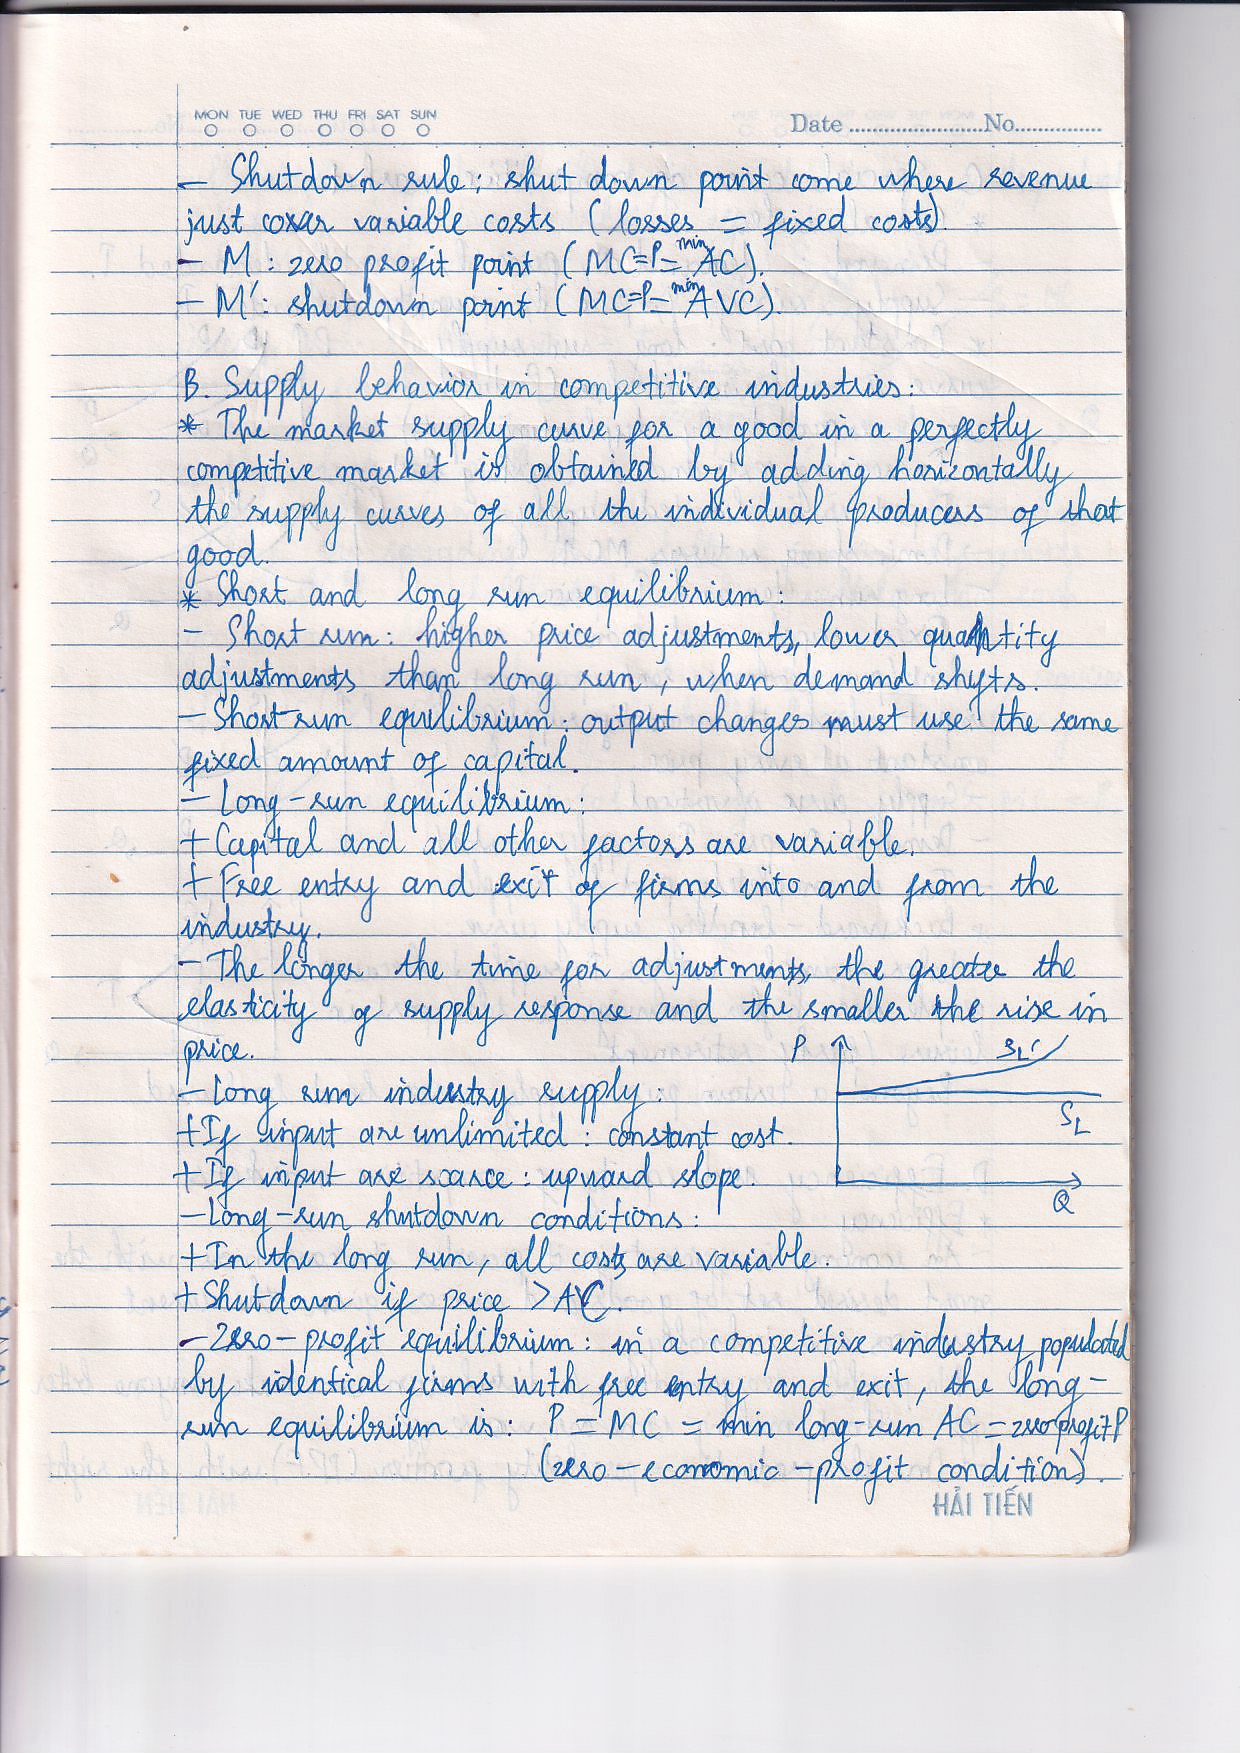 MON TUE WED THU FRI SAT SUN
Date ........................No................
- Shutdown rule: shut down point come where revenue
just cover variable costs (losses = fixed costs).
- M: zero profit point (MC=P=min AC).
- M': shutdown point (MC=P=min AVC).
B. Supply behavior in competitive industries:
* The market supply curve for a good in a perfectly
competitive market is obtained by adding horizontally
the supply curves of all the individual producers of that
good.
* Short and long run equilibrium:
- Short run: higher price adjustments, lower quantity
adjustments than long run, when demand shifts.
- Short-run equilibrium: output changes must use the same
fixed amount of capital.
- Long-run equilibrium:
+ Capital and all other factors are variable.
+ Free entry and exit of firms into and from the
industry.
- The longer the time for adjustments, the greater the
elasticity of supply response and the smaller the rise in
price.
P
SL'
- Long run industry supply:
SL
+ If input are unlimited: constant cost.
+ If input are scarce: upward slope.
Q
- Long-run shutdown conditions:
+ In the long run, all costs are variable.
+ Shutdown if price > AC.
- Zero-profit equilibrium: in a competitive industry populated
by identical firms with free entry and exit, the long-
run equilibrium is: P = MC = min long-run AC = zero profit P
(zero-economic-profit condition).
HẢI TIẾN